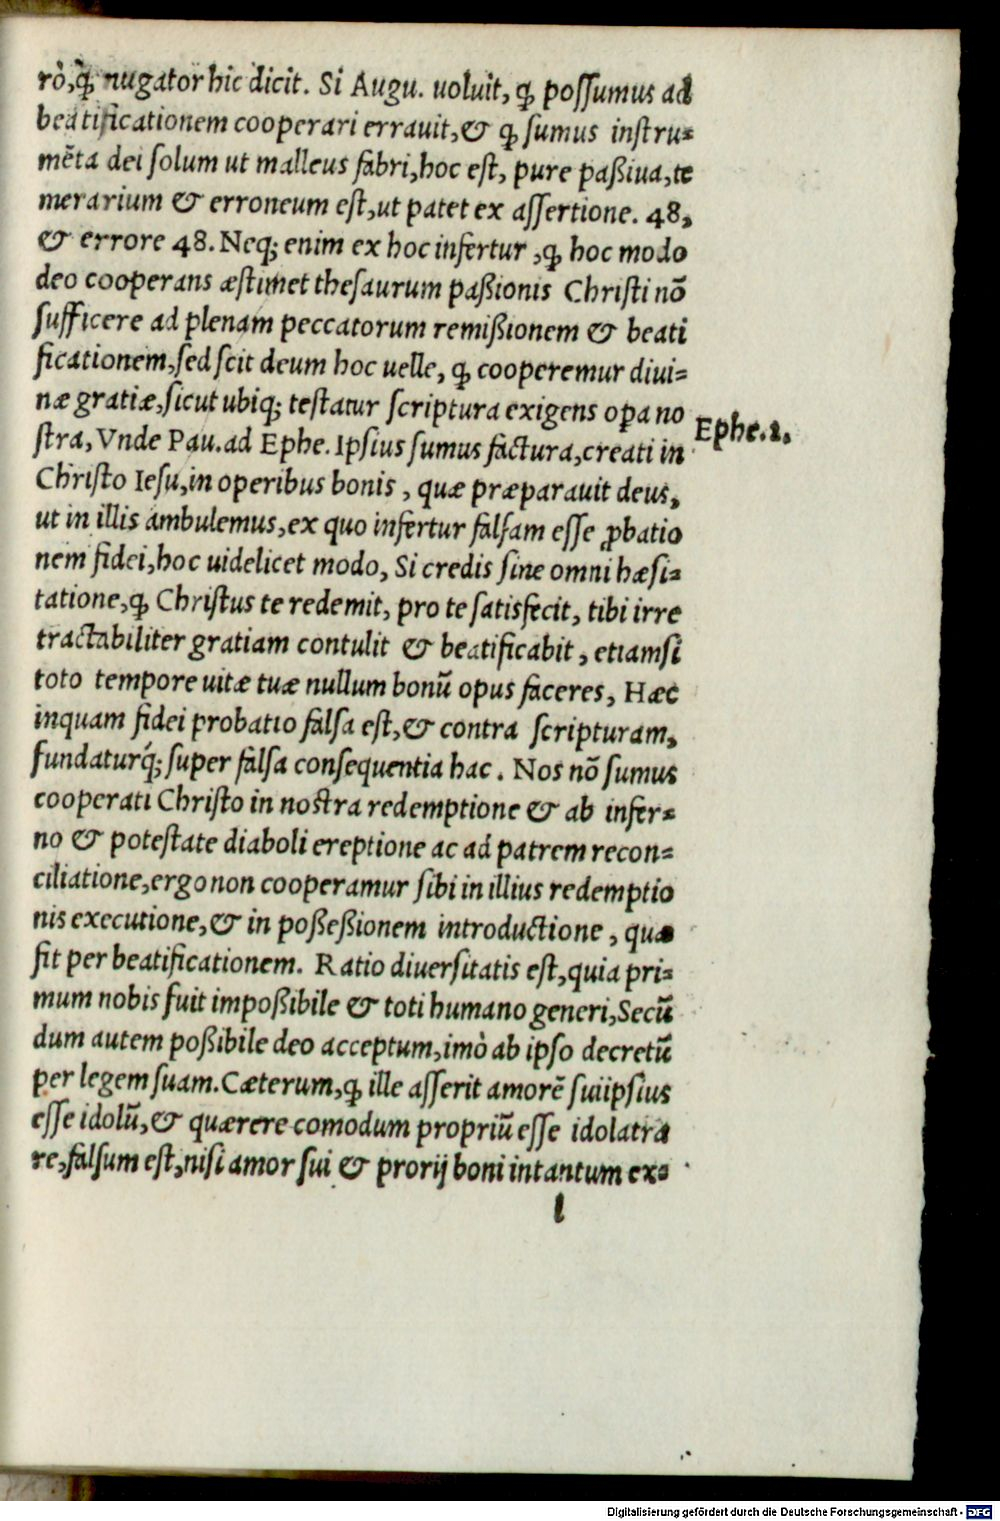 rò, ꝙ̃ nugator hic dicit. Si Augu. uoluit, ꝙ poſſumus ad
beatificationem cooperari errauit, & ꝙ ſumus inſtru=
mēta dei ſolum ut malleus fabri, hoc eſt, pure paßiua, te
merarium & erroneum eſt, ut patet ex aſſertione. 48,
& errore 48. Neq; enim ex hoc infertur, ꝙ hoc modo
deo cooperans æſtimet theſaurum paßionis Chriſti nō
ſufficere ad plenam peccatorum remißionem & beati
ficationem, ſed ſcit deum hoc uelle, ꝙ cooperemur diui=
næ gratiæ, ſicut ubiq; teſtatur ſcriptura exigens opa no
ſtra, Vnde Pau. ad Ephe. Ipſius ſumus factura, creati in
Ephe. 2,
Chriſto Ieſu, in operibus bonis, quæ præparauit deus,
ut in illis ambulemus, ex quo infertur falſam eſſe ꝓbatio
nem fidei, hoc uidelicet modo, Si credis ſine omni hæſi=
tatione, ꝙ Chriſtus te redemit, pro te ſatisfecit, tibi irre
tractabiliter gratiam contulit & beatificabit, etiamſi
toto tempore uitæ tuæ nullum bonū opus faceres, Hæc
inquam fidei probatio falſa eſt, & contra ſcripturam,
fundaturq́; ſuper falſa conſequentia hac. Nos nō ſumus
cooperati Chriſto in noſtra redemptione & ab infer=
no & poteſtate diaboli ereptione ac ad patrem recon=
ciliatione, ergo non cooperamur ſibi in illius redemptio
nis executione, & in poßeßionem introductione, quæ
fit per beatificationem. Ratio diuerſitatis eſt, quia pri=
mum nobis fuit impoßibile & toti humano generi, Secū
dum autem poßibile deo acceptum, imò ab ipſo decretū
per legem ſuam. Cæterum, ꝙ ille aſſerit amorē ſuiipſius
eſſe idolū, & quærere comodum propriū eſſe idolatra
re, falſum eſt, niſi amor ſui & prorij boni intantum ex=
l
Digitalisierung gefördert durch die Deutsche Forschungsgemeinschaft - DFG